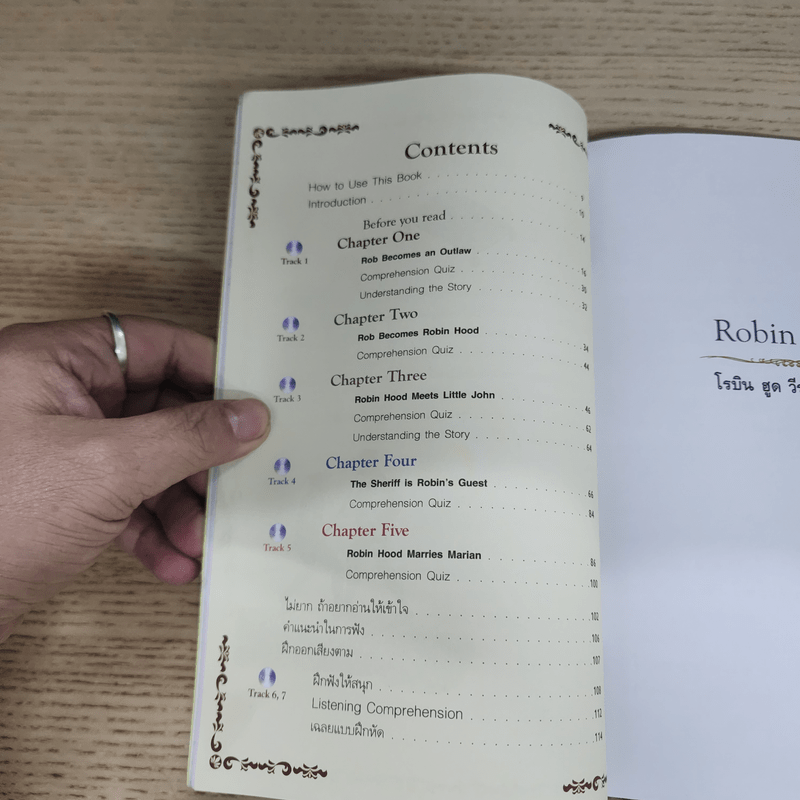 Contents
How to Use This Book
Introduction
Before you read
Chapter One
Track 1
Rob Becomes an Outlaw 16
Comprehension Quiz 30
Understanding the Story 32
Chapter Two
Track 2
Rob Becomes Robin Hood 34
Comprehension Quiz 44
Chapter Three
Track 3
Robin Hood Meets Little John 46
Comprehension Quiz 62
Understanding the Story 64
Chapter Four
Track 4
The Sheriff is Robin's Guest 66
Comprehension Quiz 84
Chapter Five
Track 5
Robin Hood Marries Marian 86
Comprehension Quiz 100
ไม่ยาก ถ้าอยากอ่านให้เข้าใจ 102
คำแนะนำในการฟัง 106
ฝึกออกเสียงตาม 107
Track 6, 7
ฝึกฟังให้สนุก 108
Listening Comprehension 112
เฉลยแบบฝึกหัด 114
Robin
โรบิน ฮูด